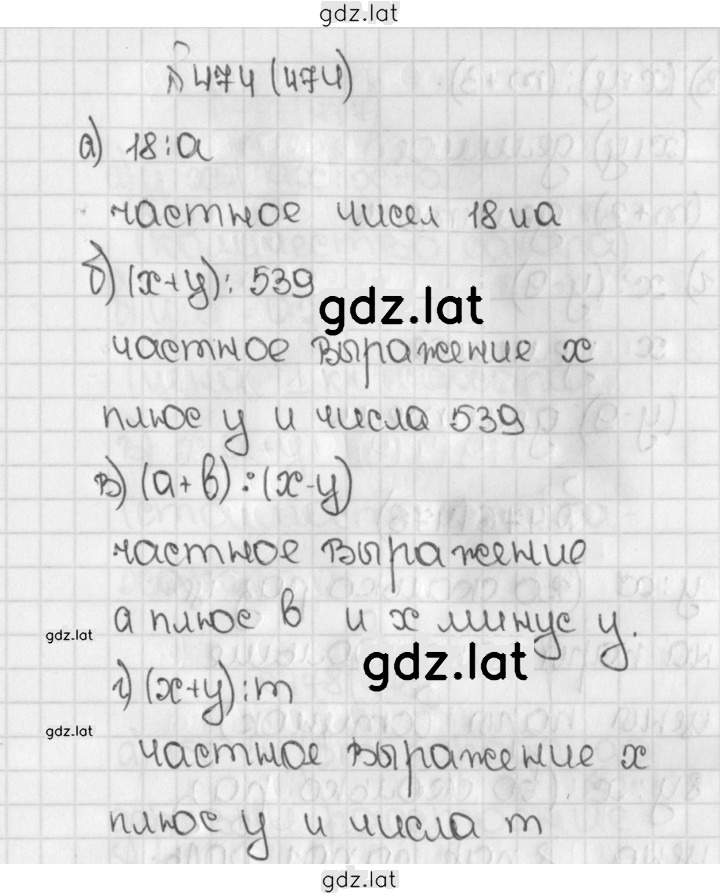 gdz.lat
№474 (474)
а) 18:а
частное чисел 18 и а
б) (x+y): 539
gdz.lat
частное выражение x
плюс y и числа 539
в) (а+в):(x-y)
частное выражение
а плюс в и x минус y.
gdz.lat
gdz.lat
г) (x+y):m
gdz.lat
частное выражение x
плюс y и числа m
gdz.lat